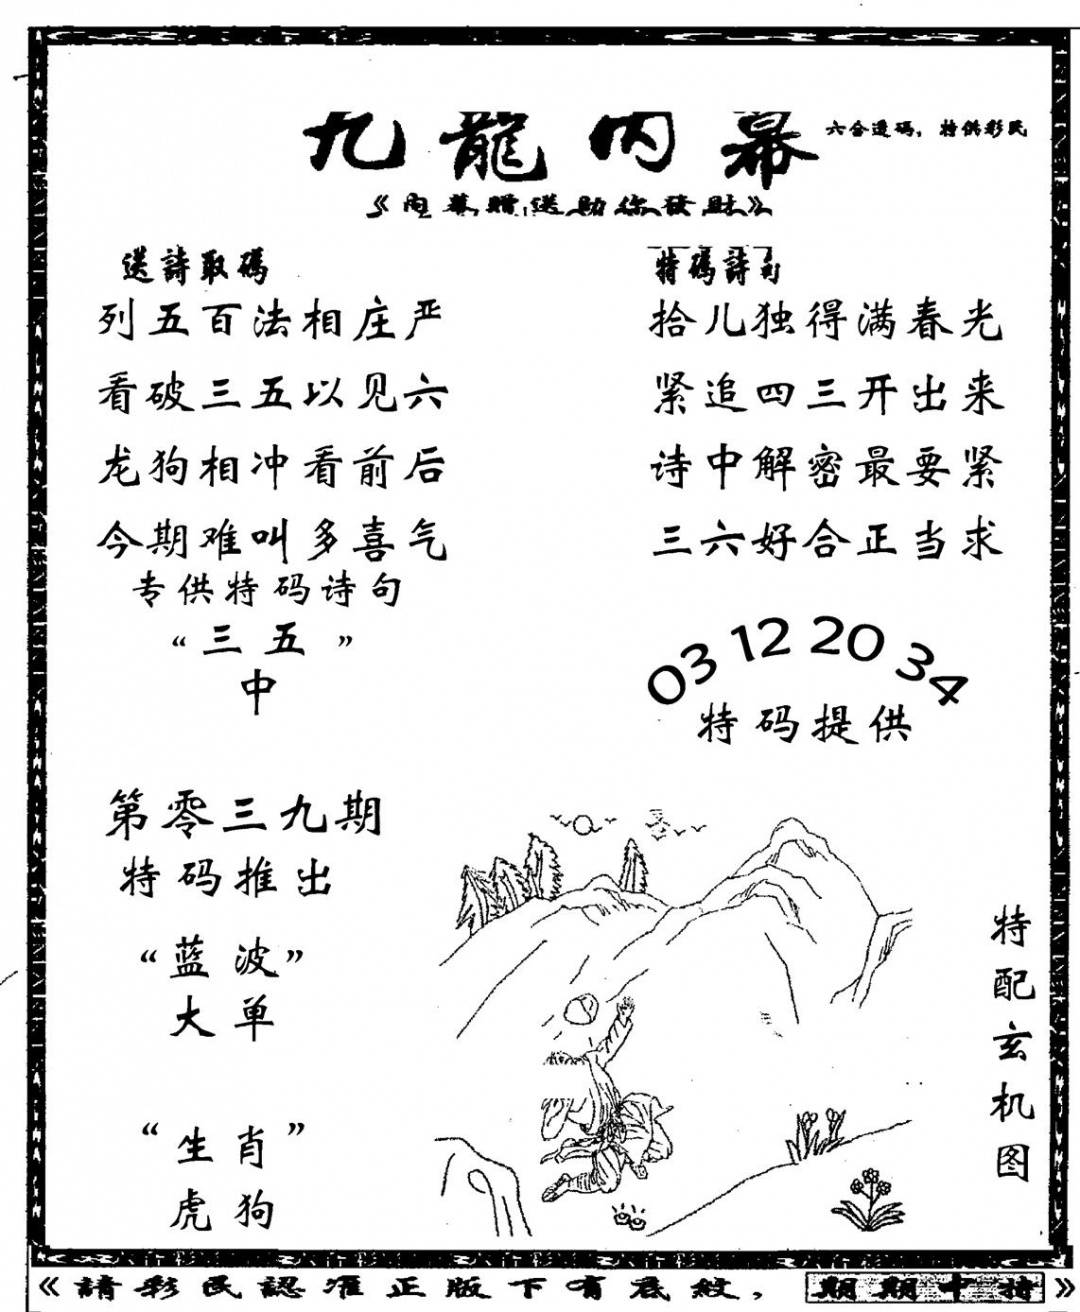 九龍内幕
六合透码，特供彩民
《内幕赠送助你發財》
送詩取碼
列五百法相庄严
看破三五以见六
龙狗相冲看前后
今期难叫多喜气
专供特码诗句
“三五”
中
特碼詩句
拾儿独得满春光
紧追四三开出来
诗中解密最要紧
三六好合正当求
03 12 20 34
特码提供
第零三九期
特码推出
“蓝波”
大单
“生肖”
虎狗
特配玄机图
《請彩民認准正版下有底紋，期期中特》